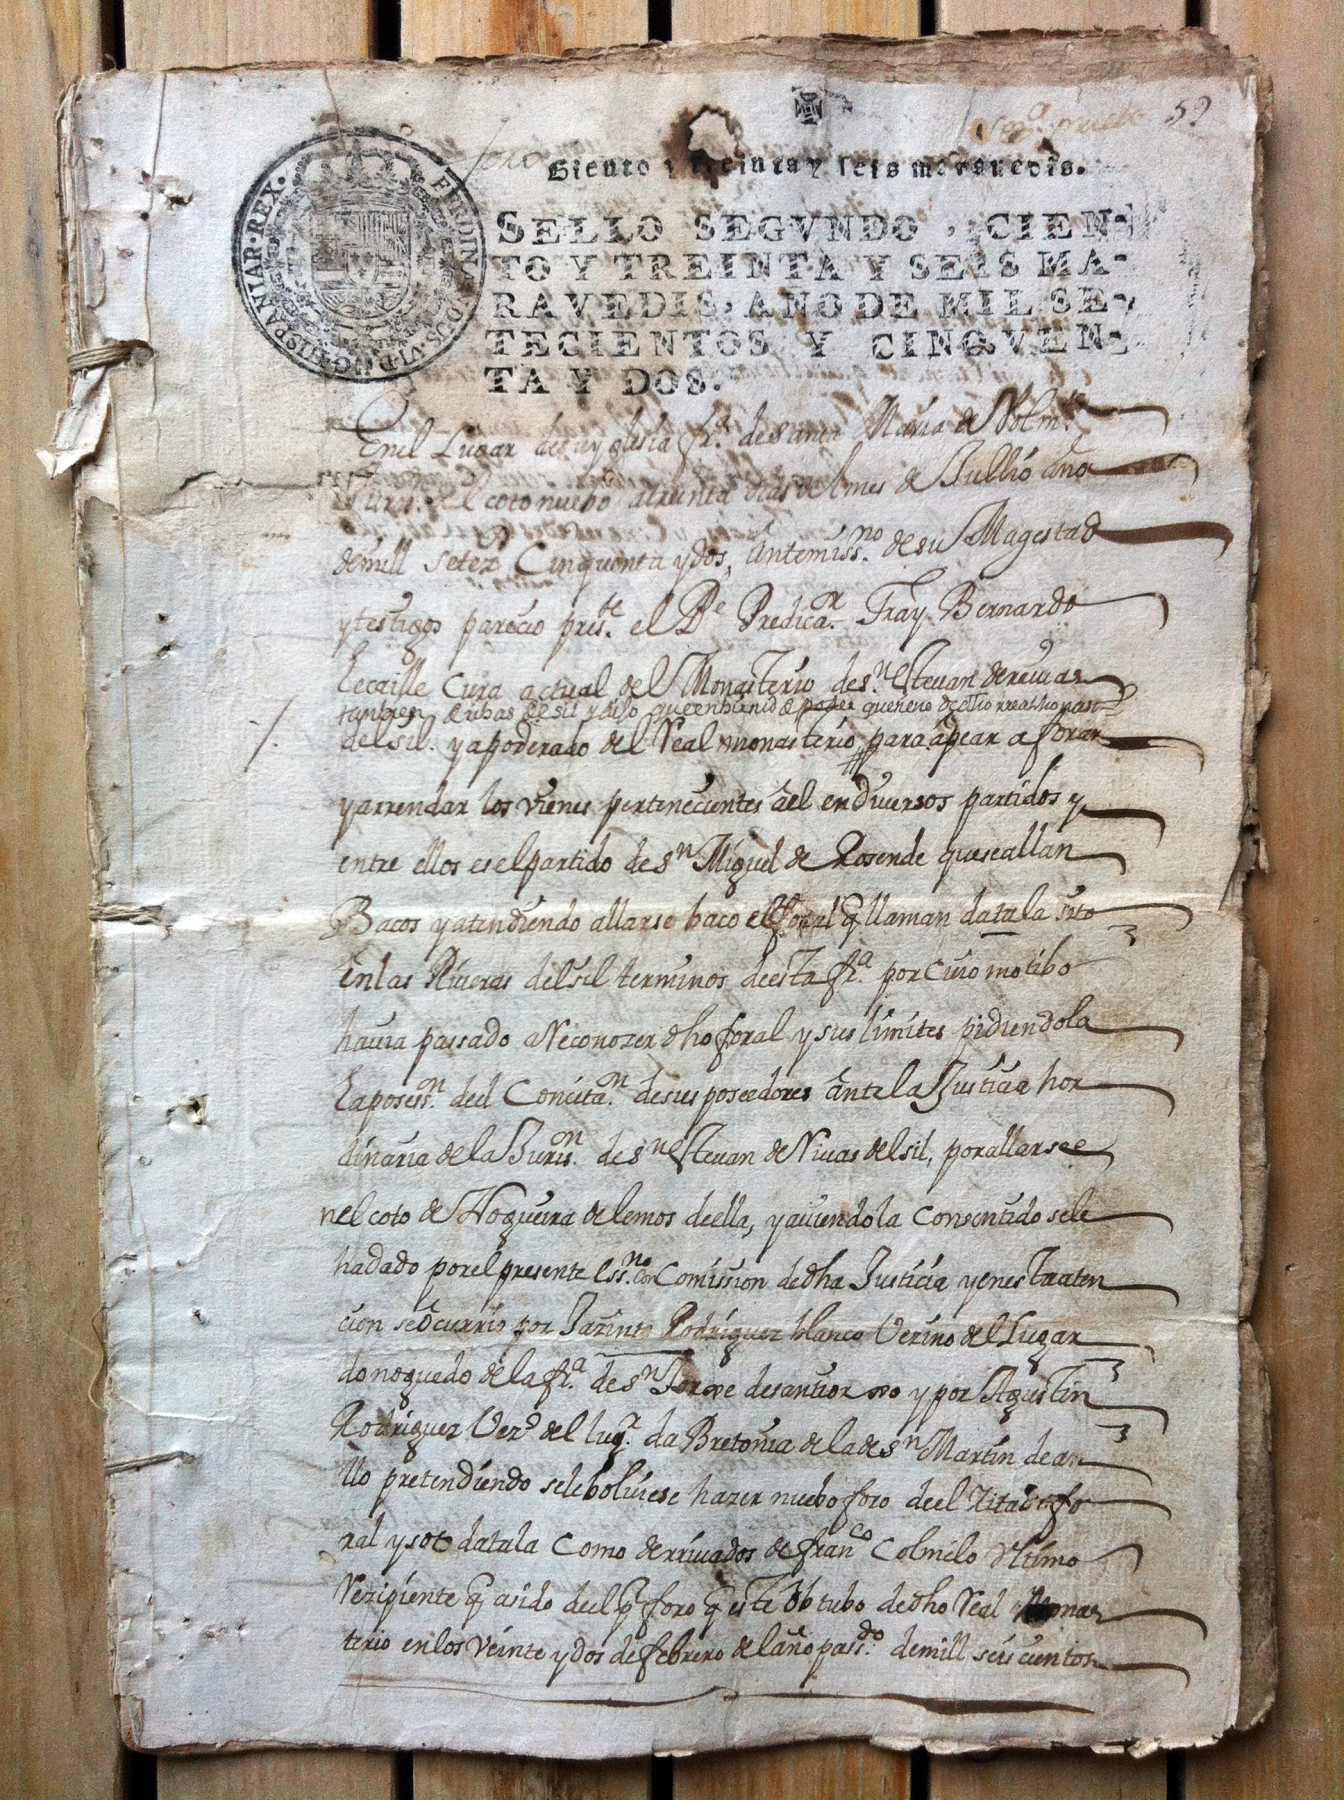 59
foro
Siento y treinta y seis maravedis.
FERDINANDUS.VI.D.G.HISPANIAR.REX.
SELLO SEGVNDO, CIEN-
TO Y TREINTA Y SEIS MA-
RAVEDIS, AÑO DE MIL SE-
TECIENTOS Y CINQVEN-
TA Y DOS.
En el Lugar de la yglesia fra. de Santa María de
el coto nuebo a treinta dias del mes de Jullio año
de mill setez.s Cinquenta y dos, ante mi ss.no de su Magestad
y testigos pareció pres.te el Pe Predica.or Fray Bernardo
Lecaille Cura actual del Monasterio de s.n estevan de
de ribas de sil y dijo que en birtud de poder que tiene de dho rreal
del sil. y apoderado del Real monasterio, para apear aforar
y arrendar los vienes pertenecientes a el en diversos partidos y
entre ellos es el partido de sn Miguel de Rosende que se allan
Bacos y atendiendo allarse baco el foral q llaman da tala sito
en las Riveras del sil terminos de esta fra. por cuio motibo
havia passado a Reconozer dho foral y sus limites pidiendo la
la posess.on de el con cita.on de sus poseedores ante la Justicia hor
dinaria de la Juris.on de sn estevan de Rivas del sil, por allarse e
n el coto de Nogueira de lemos de ella, y aviendola consentido se le
ha dado por el presente ess.no con Comission de dha Justicia y en esta aten
cion se ocurrio por Jazinto Rodriguez blanco Vezino del Lugar
do noguedo de la fra. de sn Jorge de santiorxo y por Agustin
Rodriguez Vez.o del lug.r da Bretoña de la de sn Martin de an
llo pretendiendo se le bolviese hazer nuebo foro de el zitado fo
ral y soto da tala como derivados de fran.co Colmelo ultimo
Rezipiente q a sido de el p.r foro q este obtubo de dho Real Monas
terio en los veinte y dos de febrero del año pass.do de mill seiscientos